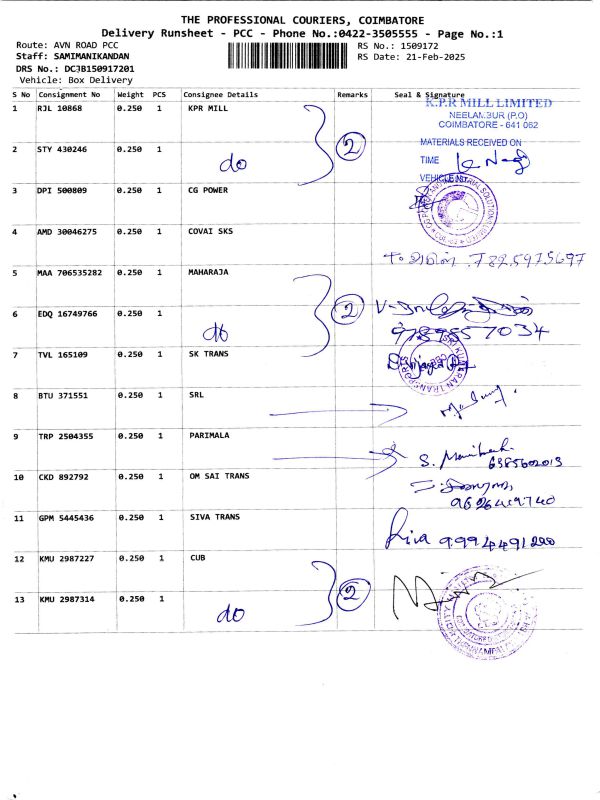 THE PROFESSIONAL COURIERS, COIMBATORE
Delivery Runsheet - PCC - Phone No.:0422-3505555 - Page No.:1
Route: AVN ROAD PCC RS No.: 1509172
Staff: SAMIMANIKANDAN RS Date: 21-Feb-2025
DRS No.: DC3B150917201
Vehicle: Box Delivery
S No Consignment No Weight PCS Consignee Details Remarks Seal & Signature
1 RJL 10868 0.250 1 KPR MILL
K.P.R MILL LIMITED
NEELAMBUR (P.O)
COIMBATORE - 641 062
2 STY 430246 0.250 1 do 2
MATERIALS RECEIVED ON
TIME
3 DPI 500809 0.250 1 CG POWER
4 AMD 30046275 0.250 1 COVAI SKS
7825975697
5 MAA 706535282 0.250 1 MAHARAJA
6 EDQ 16749766 0.250 1 do 2
9789557034
7 TVL 165109 0.250 1 SK TRANS
8 BTU 371551 0.250 1 SRL
9 TRP 2504355 0.250 1 PARIMALA
6385602013
10 CKD 892792 0.250 1 OM SAI TRANS
9626419740
11 GPM 5445436 0.250 1 SIVA TRANS
9994491200
12 KMU 2987227 0.250 1 CUB
13 KMU 2987314 0.250 1 do 2